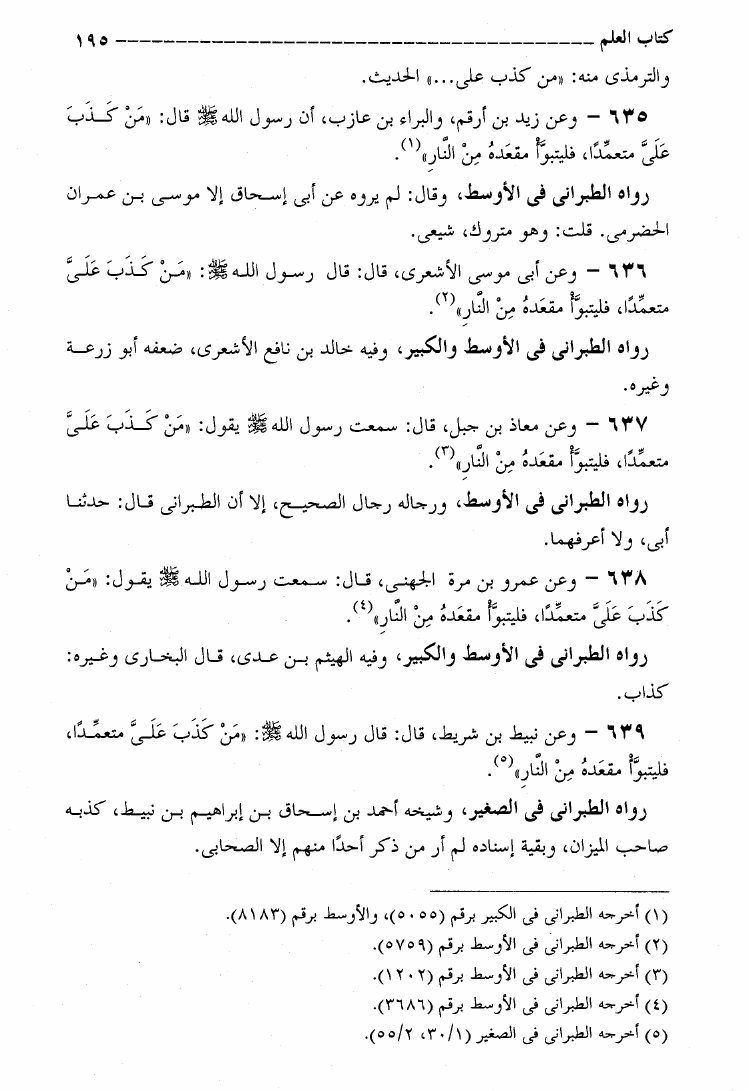 كتاب العلم ــــــــــــــــــــــــــــــــــــــــ ١٩٥
والترمذى منه: «من كذب على...» الحديث.
٦٣٥ – وعن زيد بن أرقم، والبراء بن عازب، أن رسول الله ﷺ قال: «مَنْ كَـذَبَ
عَلَىَّ متعمِّدًا، فليتبوَّأْ مقعَدهُ مِنْ النَّارِ»(١).
رواه الطبرانى فى الأوسط، وقال: لم يروه عن أبى إسحاق إلا موسى بن عمران
الحضرمى. قلت: وهو متروك، شيعى.
٦٣٦ – وعن أبى موسى الأشعرى، قال: قال رسول الله ﷺ: «مَنْ كَذَبَ عَلَىَّ
متعمِّدًا، فليتبوَّأْ مقعَدهُ مِنْ النَّارِ»(٢).
رواه الطبرانى فى الأوسط والكبير، وفيه خالد بن نافع الأشعرى، ضعفه أبو زرعة
وغيره.
٦٣٧ – وعن معاذ بن جبل، قال: سمعت رسول الله ﷺ يقول: «مَنْ كَـذَبَ عَلَىَّ
متعمِّدًا، فليتبوَّأْ مقعَدهُ مِنْ النَّارِ»(٣).
رواه الطبرانى فى الأوسط، ورجاله رجال الصحيح، إلا أن الطبرانى قال: حدثنا
أبى، ولا أعرفهما.
٦٣٨ – وعن عمرو بن مرة الجهنى، قال: سمعت رسول الله ﷺ يقول: «مَنْ
كَذَبَ عَلَىَّ متعمِّدًا، فليتبوَّأْ مقعَدهُ مِنْ النَّارِ»(٤).
رواه الطبرانى فى الأوسط والكبير، وفيه الهيثم بن عدى، قال البخارى وغيره:
كذاب.
٦٣٩ – وعن نبيط بن شريط، قال: قال رسول الله ﷺ: «مَنْ كَذَبَ عَلَىَّ متعمِّدًا،
فليتبوَّأْ مقعَدهُ مِنْ النَّارِ»(٥).
رواه الطبرانى فى الصغير، وشيخه أحمد بن إسحاق بن إبراهيم بن نبيط، كذبه
صاحب الميزان، وبقية إسناده لم أر من ذكر أحدًا منهم إلا الصحابى.
(١) أخرجه الطبرانى فى الكبير برقم (٥٠٥٥)، والأوسط برقم (٨١٨٣).
(٢) أخرجه الطبرانى فى الأوسط برقم (٥٧٥٩).
(٣) أخرجه الطبرانى فى الأوسط برقم (١٢٠٢).
(٤) أخرجه الطبرانى فى الأوسط برقم (٣٦٨٦).
(٥) أخرجه الطبرانى فى الصغير (٣٠/١، ٥٥/٢).